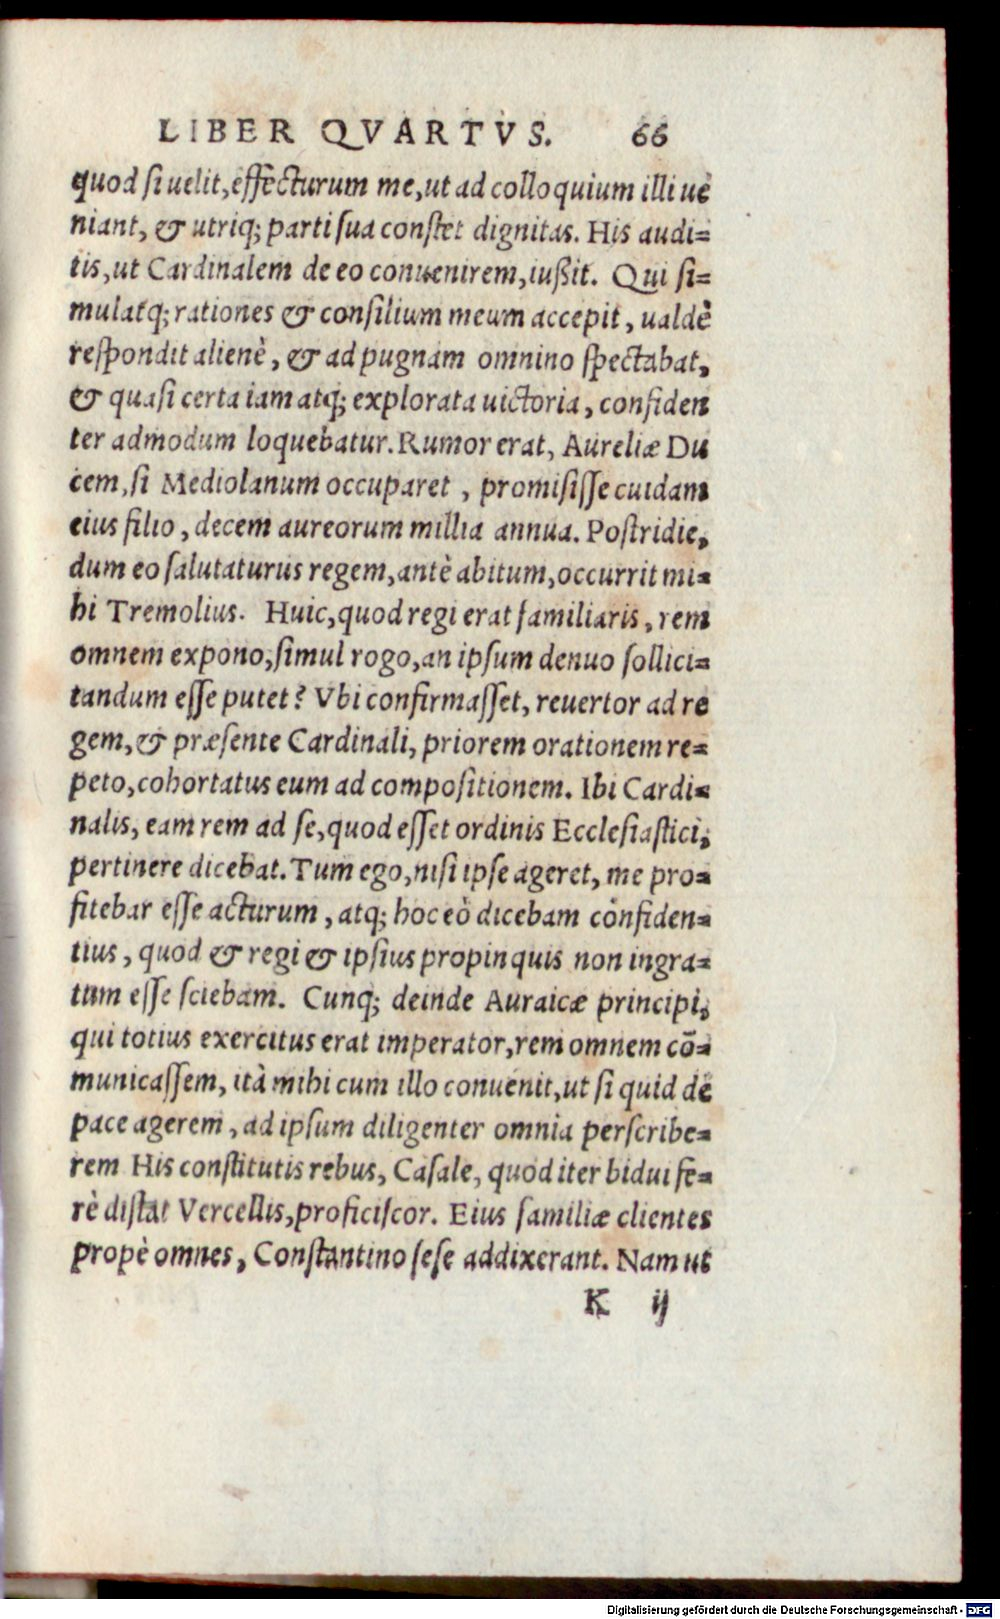 LIBER QVARTVS. 66
quod si uelit, effecturum me, ut ad colloquium illi uē
niant, & utriq; parti sua constet dignitas. His audi=
tis, ut Cardinalem de eo conuenirem, iußit. Qui si=
mulatq; rationes & consilium meum accepit, ualdè
respondit alienè, & ad pugnam omnino spectabat,
& quasi certa iam atq; explorata uictoria, confiden
ter admodum loquebatur. Rumor erat, Aureliæ Du
cem, si Mediolanum occuparet, promisisse cuidam
eius filio, decem aureorum millia annua. Postridie,
dum eo salutaturus regem, antè abitum, occurrit mi=
hi Tremolius. Huic, quod regi erat familiaris, rem
omnem expono, simul rogo, an ipsum denuo sollici=
tandum esse putet? Vbi confirmasset, reuertor ad re
gem, & præsente Cardinali, priorem orationem re=
peto, cohortatus eum ad compositionem. Ibi Cardi=
nalis, eam rem ad se, quod esset ordinis Ecclesiastici,
pertinere dicebat. Tum ego, nisi ipse ageret, me pro=
fitebar esse acturum, atq; hoc eò dicebam confiden=
tius, quod & regi & ipsius propinquis non ingra=
tum esse sciebam. Cunq; deinde Auraicæ principi,
qui totius exercitus erat imperator, rem omnem cō=
municassem, ità mihi cum illo conuenit, ut si quid de
pace agerem, ad ipsum diligenter omnia perscribe=
rem His constitutis rebus, Casale, quod iter bidui fe=
rè distat Vercellis, proficiscor. Eius familiæ clientes
propè omnes, Constantino sese addixerant. Nam ut
K ij
Digitalisierung gefördert durch die Deutsche Forschungsgemeinschaft - DFG